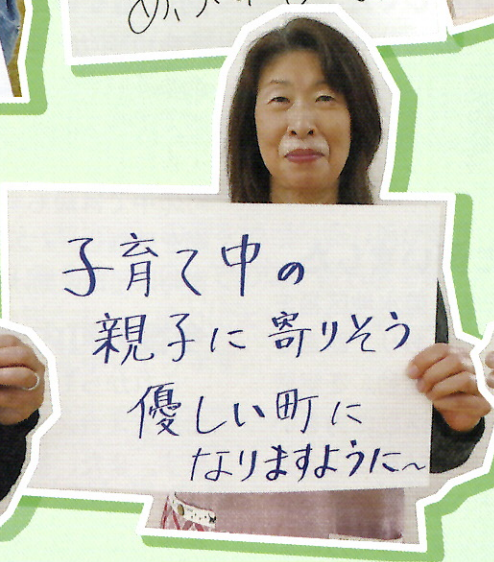 子育て中の
親子に寄りそう
優しい町に
なりますように〜